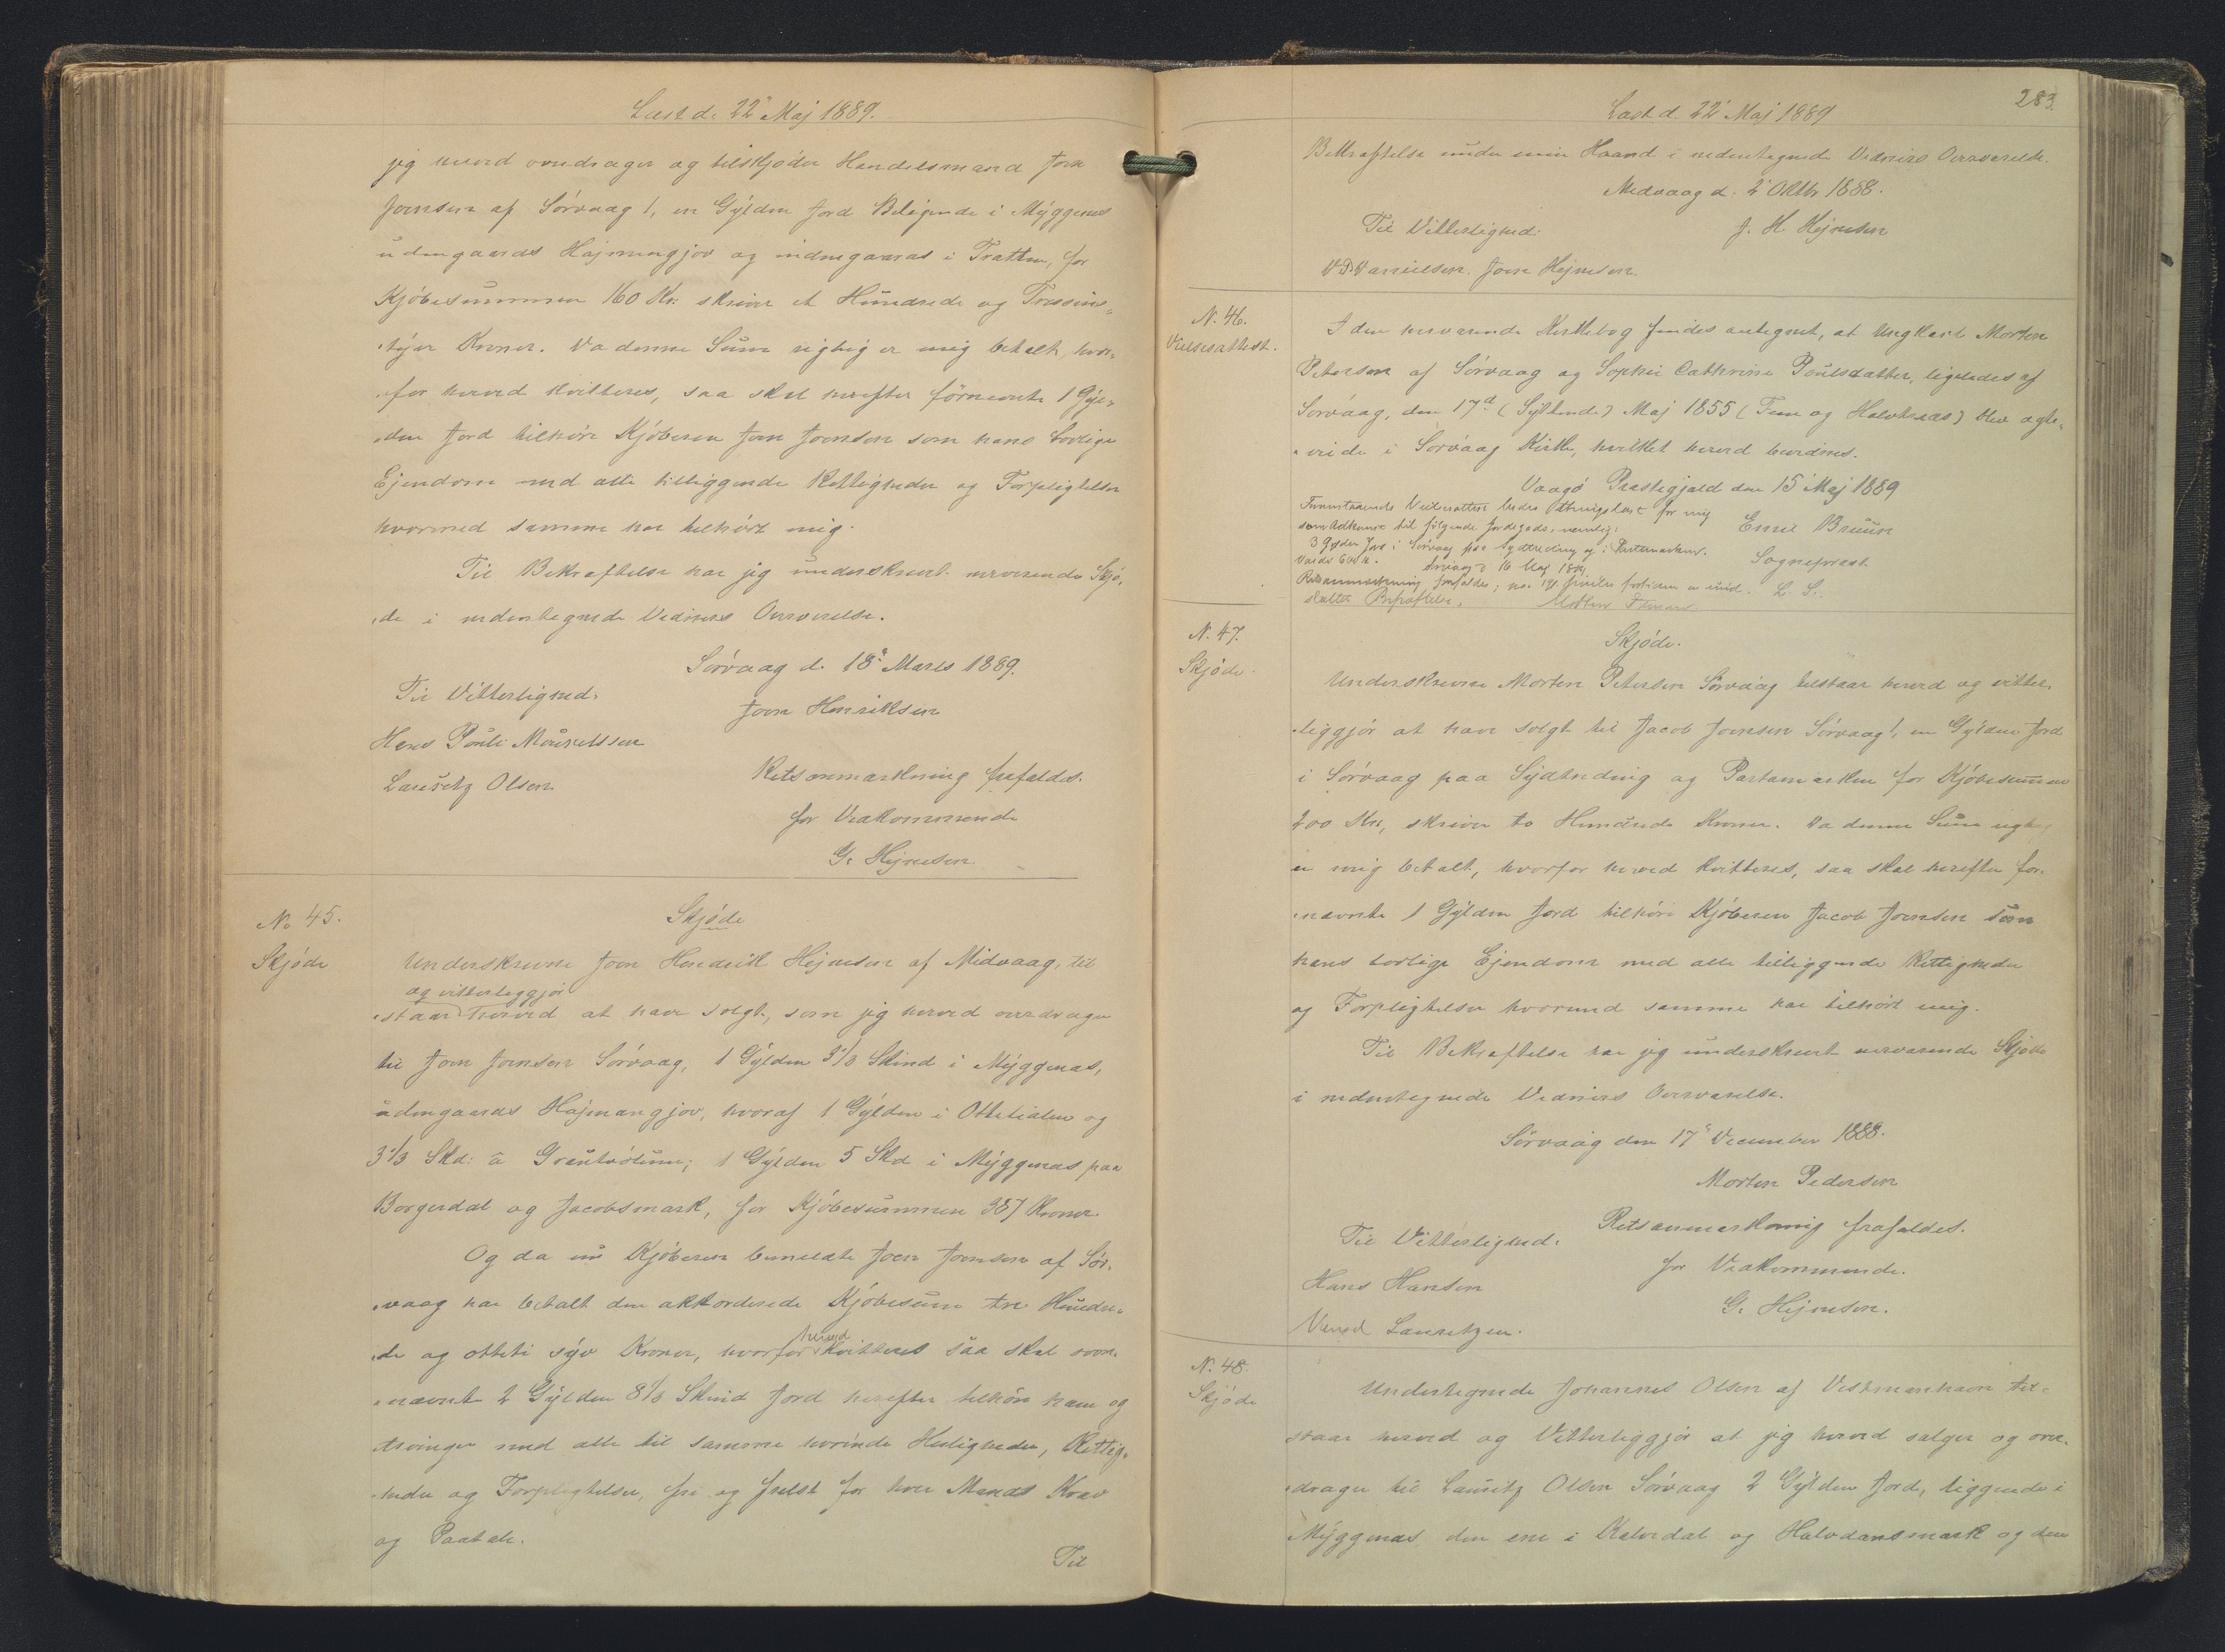 Læst d. 22 Maj 1889.
jeg herved overdrager og tilskjøder Handelsmand Joen
Joensen af Sörvaag 1, en Gÿlden Jord Beligende i Mÿggenæs
udengaards Hajmangjov og indengaards i Tratten, for
Kjöbesummen 160 Kr. skriver et Hundrede og Tresinds-
-tÿve Kroner. Da denne Sum rigtig er mig betalt, hvor-
-for herved kvitteres, saa skal herefter förnævnte 1 Gÿl-
-den Jord tilhöre Kjöberen Joen Joensen som hans lovlige
Ejendom med alle tilliggende Rettigheder og Forpligtelser
hvormed samme har tilhört mig.
Til Bekræftelse har jeg underskrevet nærværende Skjö-
-de i undertegnede Vidners Overværelse.
Sörvaag d. 18 Marts 1889.
Til Vitterlighed: Joen Henriksen
Hans Pauli Mourietssen
Lauritz Olsen Retsanmærkning frafaldes.
for Vedkommende
G. Hejnesen
No 45. Skjöde
Skjöde Underskrevne Joen Hendrik Hejnesen af Midvaag, til
og vitterleggjör
-staar herved at have solgt, som jeg herved overdrager
til Joen Joensen Sörvaag, 1 Gÿlden 3 1/3 Skind i Mÿggenæs,
udengaards Hajmangjov, hvoraf 1 Gÿlden i Ottetialen og
3 1/3 Skd: a 1 Gÿlden 5 Skd i Mÿggenæs paa
Borgardal og Jacobsmark, for Kjöbesummen 387 Kroner.
Og da nu Kjöberen bemeldte Joen Joensen af Sör-
-vaag har betalt den akkorderede Kjöbesum tre Hundre-
herved
-de og otteti sÿv Kroner, hvorfor kvitteres saa skal oven-
-nævnte 2 Gÿlden 8 1/3 Skind Jord herefter tilhöre ham og
Arvinger med alle til samme hörende Herligheder, Rettig-
-heder og Forpligtelser, fri og frelst for hver Mands Krav
og Paatale.
Til
283.
Læst d. 22 Maj 1889
Bekræftelse under min Haand i undertegnede Vidners Overværelse.
Midvaag d. 2 Oktbr. 1888.
Til Vitterlighed: J. H. Hejnesen
D. Danielsen. Joen Hejnesen.
N. 46. I den herværende Kirkebog findes antegnet, at Ungkarl Morten
Vielsesattest. Petersen af Sörvaag og Sophie Cathrine Poulsdatter, ligeledes af
Sörvaag, den 17d (Sÿttende) Maj 1855 (Fem og Halvtreds) blev ægte-
-viede i Sörvaag Kirke, hvilket herved bevidnes.
Vaagö Præstegjæld den 15 Maj 1889
Emil Bruun
Sognepræst.
L. S.
Foranstaaende Vielsesattest bedes thinglæst for mig
som Adkomst til følgende Jordegods, nemlig:
3 Gylden Jord i Sörvaag paa Sydtreding og i Partamarken.
Værdi 600 Kr. Sörvaag d 16 Maj 1889
Retsanmærkning frafaldes;
N. 47. Skjöde.
Skjöde. Underskrevne Morten Petersen Sörvaag tilstaar herved og vitter-
-liggjör at have solgt til Jacob Joensen Sörvaag 1, en Gÿlden Jord
i Sörvaag paa Sÿdtreding og Partamarken for Kjöbesummen
200 Kr, skriver to Hundrede Kroner. Da denne Sum rigtig
er mig betalt, hvorfor herved kvitteres, saa skal herefter for-
-nævnte 1 Gÿlden Jord tilhöre Kjöberen Jacob Joensen som
hans lovlige Ejendom med alle tilliggende Rettigheder
og Forpligtelser hvormed samme har tilhört mig.
Til Bekræftelse har jeg underskrevet nærværende Skjöde
i undertegnede Vidners Overværelse.
Sörvaag den 17 December 1888.
Morten Pedersen
Til Vitterlighed: Retsanmærkning frafaldes.
Hans Hansen for Vedkommende.
Lauritzen. G. Hejnesen.
N. 48. Undertegnede Johannes Olsen af Vestmanhavn til-
Skjöde -staar herved og Vitterliggjör at jeg herved sælger og over-
-drager til Lauritz Olsen Sörvaag 2 Gÿlden Jord, liggende i
Mÿggenæs, den ene i Kalvedal og Halvdansmark og den